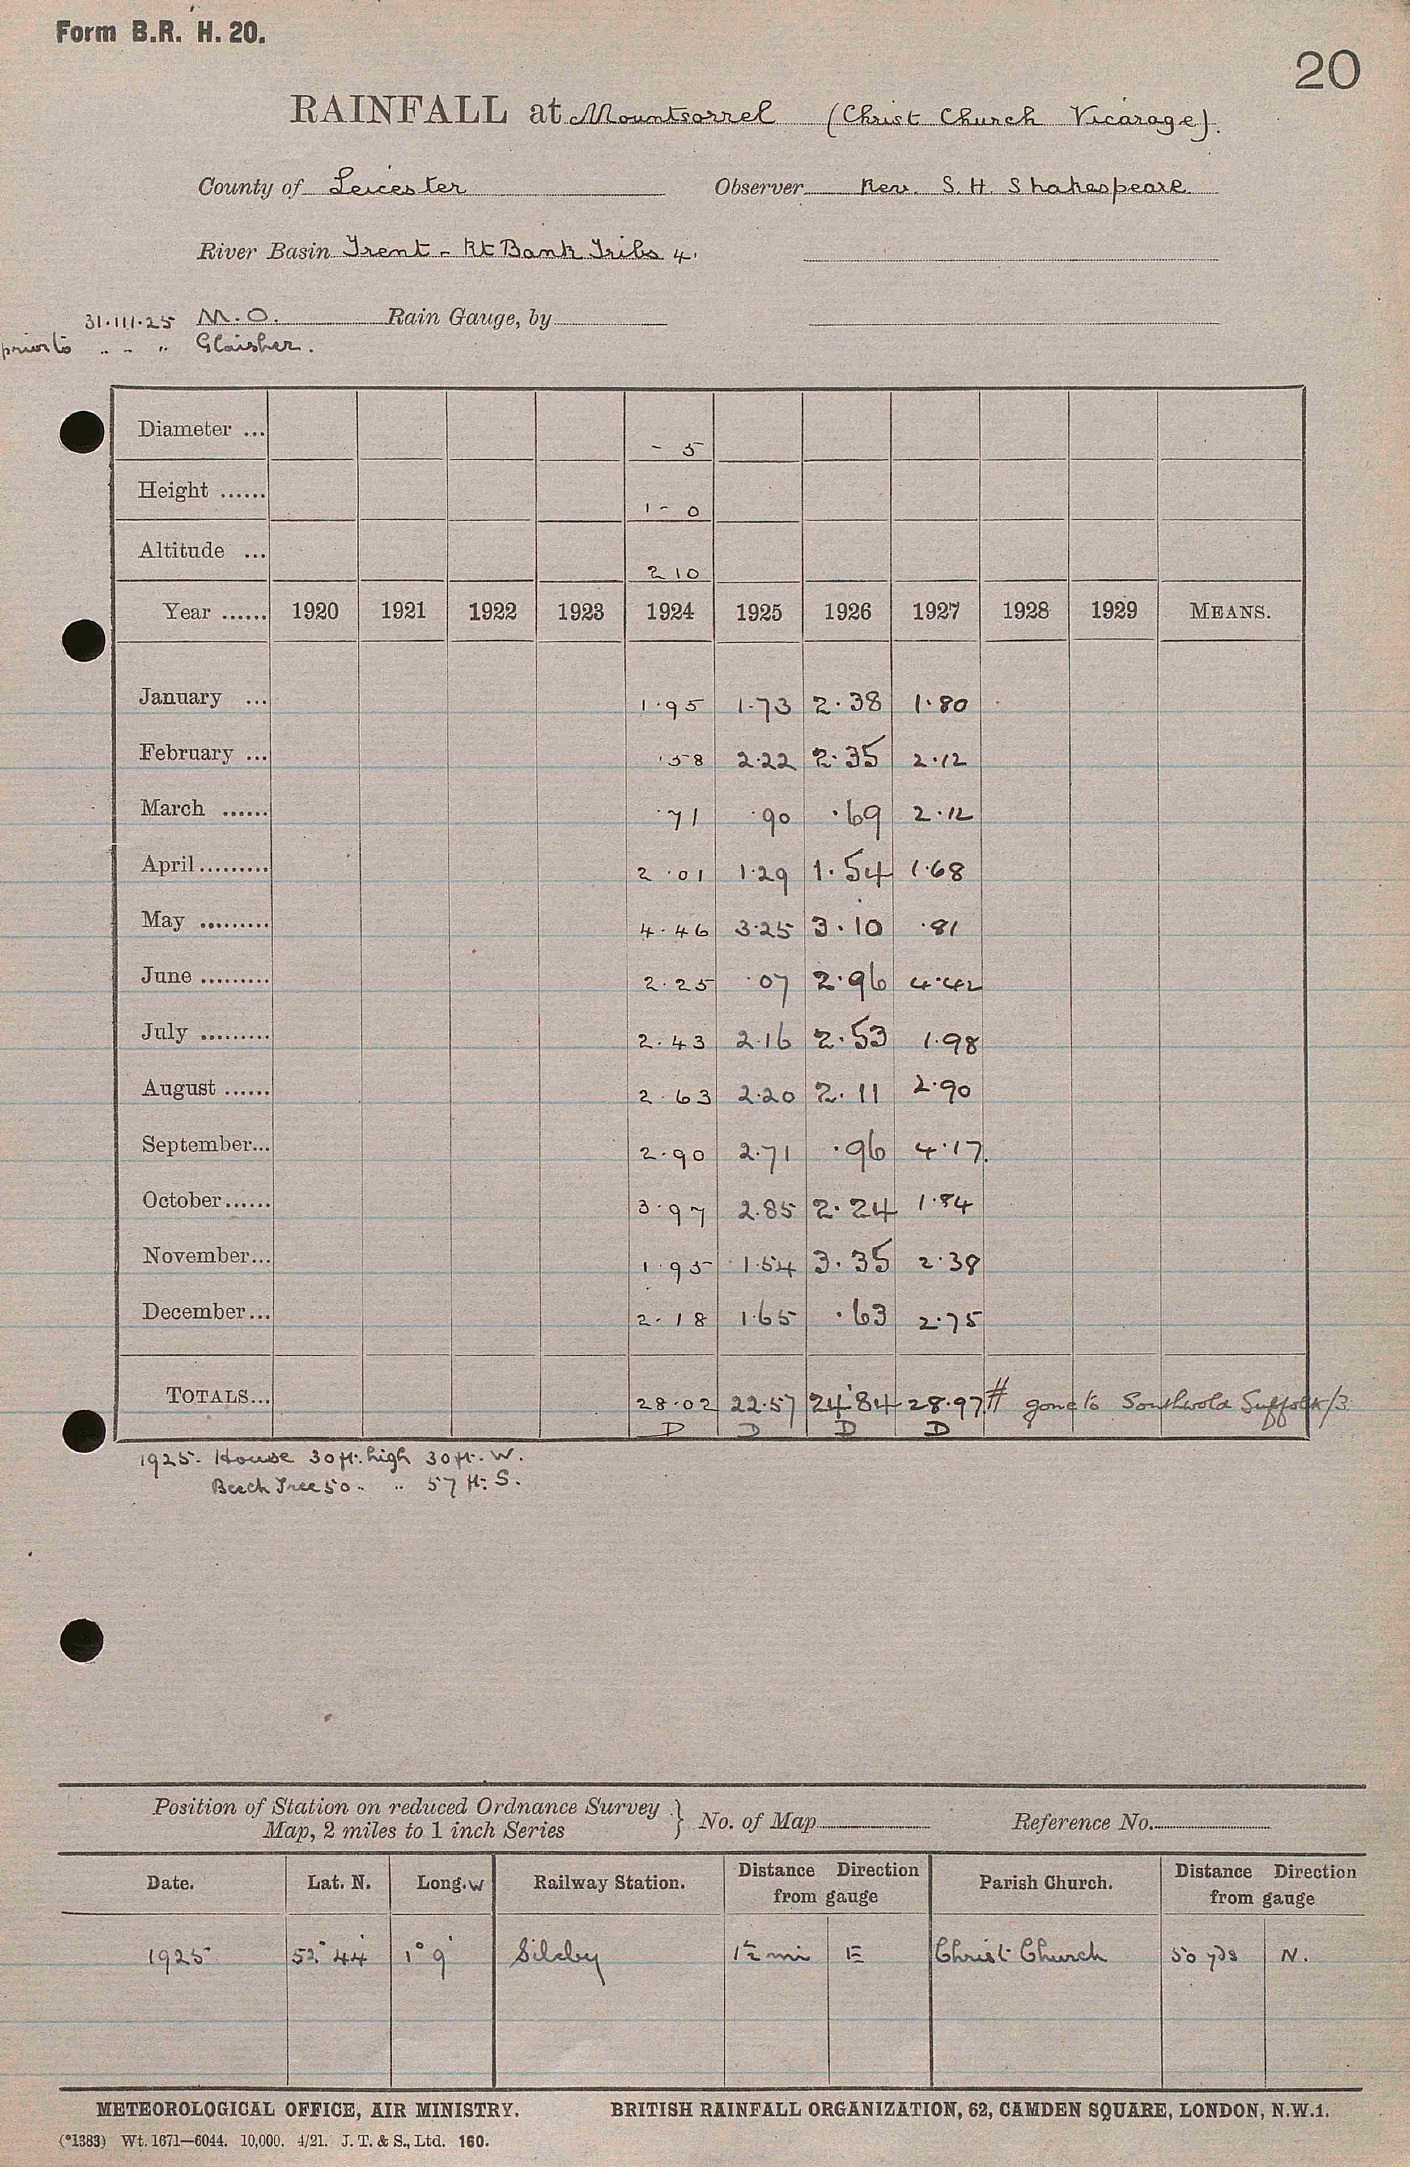 Form B.R. H. 20.
20
RAINFALL at Mountsorrel (Christ Church Vicarage).
County of Leicester Observer Rev. S. H. Shakespeare
River Basin Trent - Rt Bank Tribs 4.
31.III.25 M.O. Rain Gauge, by
prior to " " " Glaisher.
Diameter ... - 5
Height ...... 1 - 0
Altitude ... 210
Year ...... 1920 1921 1922 1923 1924 1925 1926 1927 1928 1929 MEANS.
January ... 1.95 1.73 2.38 1.80
February ... .58 2.22 2.35 2.12
March ...... .71 .90 .69 2.12
April ......... 2.01 1.29 1.54 1.68
May ......... 4.46 3.25 3.10 .81
June ......... 2.25 .07 2.96 4.42
July ......... 2.43 2.16 2.53 1.98
August ...... 2.63 2.20 2.11 2.90
September... 2.90 2.71 .96 4.17
October...... 3.97 2.85 2.24 1.84
November... 1.95 1.54 3.35 2.38
December... 2.18 1.65 .63 2.75
TOTALS... 28.02 22.57 24.84 28.97 # gone to Southwold Suffolk/3.
D D D D
1925. House 30 ft. high 30 ft. W.
Beech Tree 50 " " 57 ft. S.
Position of Station on reduced Ordnance Survey } No. of Map Reference No.
Map, 2 miles to 1 inch Series
Date. Lat. N. Long. W Railway Station. Distance Direction from gauge Parish Church. Distance Direction from gauge
1925 52° 44' 1° 9' Sileby 1½ mi E Christ Church 50 yds N.
METEOROLOGICAL OFFICE, AIR MINISTRY. BRITISH RAINFALL ORGANIZATION, 62, CAMDEN SQUARE, LONDON, N.W.1.
(*1383) Wt. 1671—6044. 10,000. 4/21. J. T. & S., Ltd. 160.